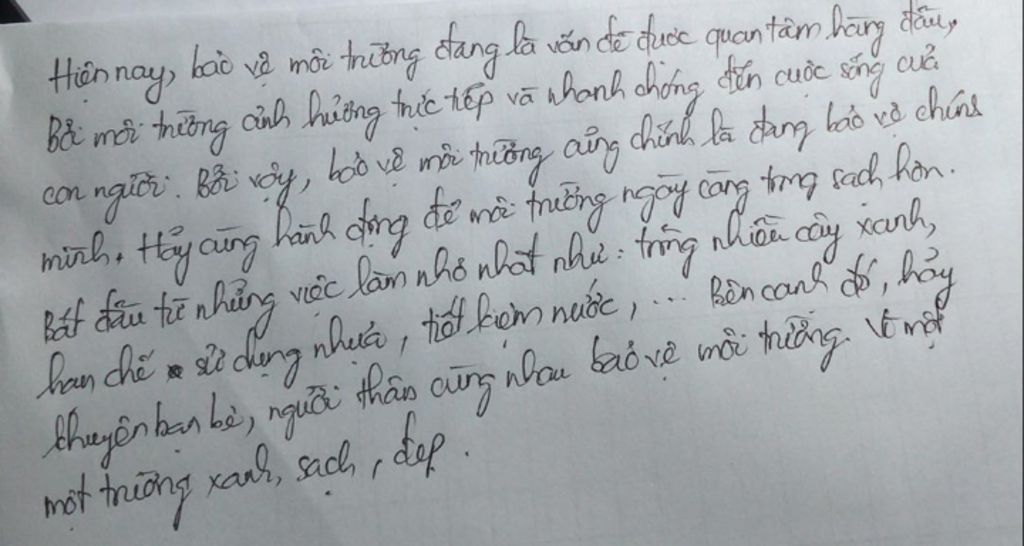 Hiện nay, bảo vệ môi trường đang là vấn đề được quan tâm hàng đầu,
Bởi môi trường ảnh hưởng trực tiếp và nhanh chóng đến cuộc sống của
con người. Bởi vậy, bảo vệ môi trường cũng chính là đang bảo vệ chúng
mình. Hãy cùng hành động để môi trường ngày càng trong sạch hơn.
Bắt đầu từ những việc làm nhỏ nhất như: trồng nhiều cây xanh,
hạn chế sử dụng nhựa, tiết kiệm nước, ... Bên cạnh đó, hãy
khuyên bạn bè, người thân cùng nhau bảo vệ môi trường. Vì một
một trường xanh, sạch, đẹp.